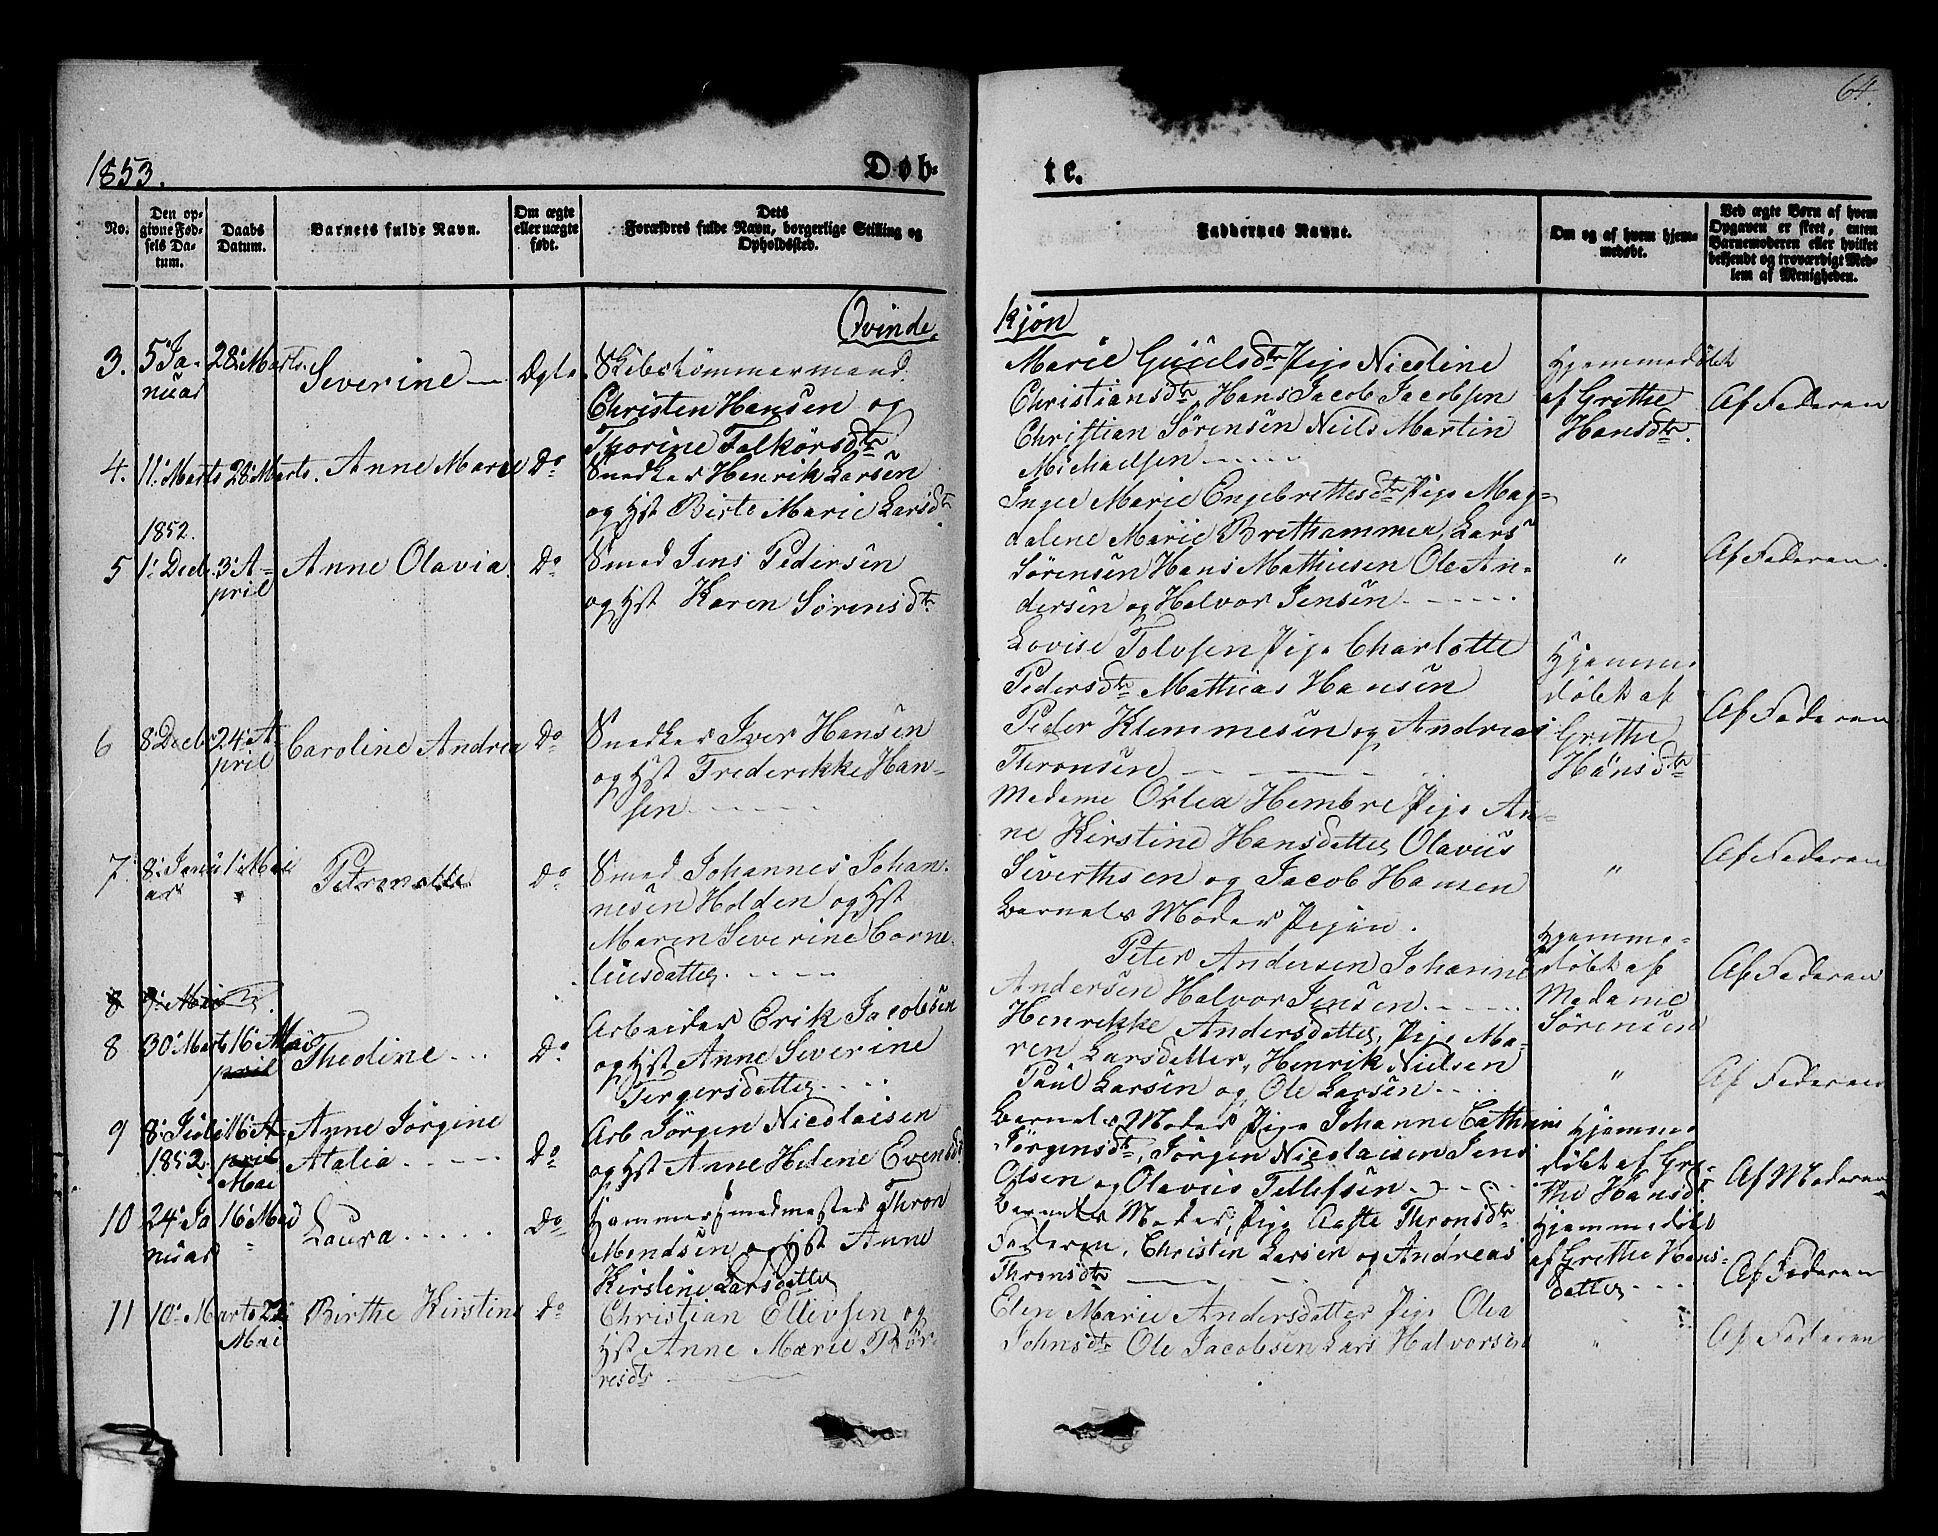 64.
1853.
Døb-
te.
No.
Den op-
givne Fød-
sels Da-
tum.
Daabs
Datum.
Barnets fulde Navn.
Om ægte
eller uægte
født.
Dets
Forældres fulde Navn, borgerlige Stilling og
Opholdssted.
Faddernes Navne.
Om og af hvem hjem-
medøbt.
Ved ægte Børn af hvem
Opgaven er skeet, enten
Barnemoderen eller hvilket
bekjendt og troværdigt Med-
lem af Menigheden.
Qvinde.
kjøn
3.
5' Ja-
nuar
28' Marts.
Severine
Ægte.
Skibstømmermand
Christen Hansen og
Thorine Falkörsdtr
Marie Guulsdtr Pige Nicoline
Christiansdtr, Hans Jacob Jacobsen
Christian Sørensen Niels Martin
Michaelsen
Hjemmedøbt
af Grethe
Hansdtr.
Af Faderen
4.
11' Marts
28' Marts.
Anne Marie
Do
Snedker Henrik Larsen
og Hst Birte Marie Larsdtr
Inger Marie Engebrettesdtr Pige Mag-
dalene Marie Brethammer, Lars
Sørensen Hans Mathiesen Ole An-
dersen og Halvor Jensen
"
Af Faderen.
1852.
5
1' Decbr.
3' A-
pril
Anne Olavia.
Do
Smed Jens Pedersen
og Hst Karen Sørensdtr
Lovise Tolvsen Pige Charlotte
Pedersdtr Mathias Hansen
Peder Klemmesen og Andreas
Thronsen
Hjemme
døbt af
Grethe
Hansdtr
Af Faderen
6
8' Decbr
24' A-
pril
Caroline Andrea
Do
Snedker Iver Hansen
og Hst Frederikke Han-
sen
Madame Ortea Hembre Pige An-
ne Kirstine Hansdatter Olavus
Siverthsen og Jacob Hansen
"
Af Faderen
7.
8' Janu
ar
1' Mai
Petronolle
Do
Smed Johannes Johan-
nesen Holden og Hst
Maren Severine Corne-
liusdatter
Barnets Moder Pigen.
Peter Andersen Johanne
Andersen Halvor Jensen
Hjemme-
døbt af
Madame
Sørensen
Af Faderen
8
9' Mai
8
30' Marts
16' Mai
pril
Thedine
Do.
Arbeider Erik Jacobsen
og Hst Anne Severine
Tergersdatter
Henrikke Andersdatter, Pige Ma-
ren Larsdatter, Henrik Nielsen
Paul Larsen og Ole Larsen
"
Af Faderen
9
8' Juli
1852
16' A-
pril
Mai
Anne Jørgine
Atalia
Do
Arb Jørgen Nicolaisen
og Hst Anne Helene Evensdtr
Barnets Moder Pige Johanne Cathrine
Jørgensdtr, Jørgen Nicolaisen Jens
Olsen og Olavus Tellefsen
Hjemme
døbt af Gre-
the Hansdtr
Af Moderen
10
24' Ja
nuar
16' Mai
"
Laura
Do
Hammersmedmester Thron
Mandsen og Hst Anne
Kirstine Larsdatter
Barnets Moder, Pige Aaste Thronsdtr
Faderen, Christen Larsen og Andreas
Thronsdtr
Hjemmedøbt
af Grethe Hans-
datter
Af Faderen
11
10' Marts
22'
Mai
Birthe Kirstine
Do
Christian Ellevsen og
Hst Anne Marie Thor-
resdtr
Elen Marie Andersdatter Pige Olea
Johnsdtr Ole Jacobsen Lars Halvorsen
"
Af Faderen